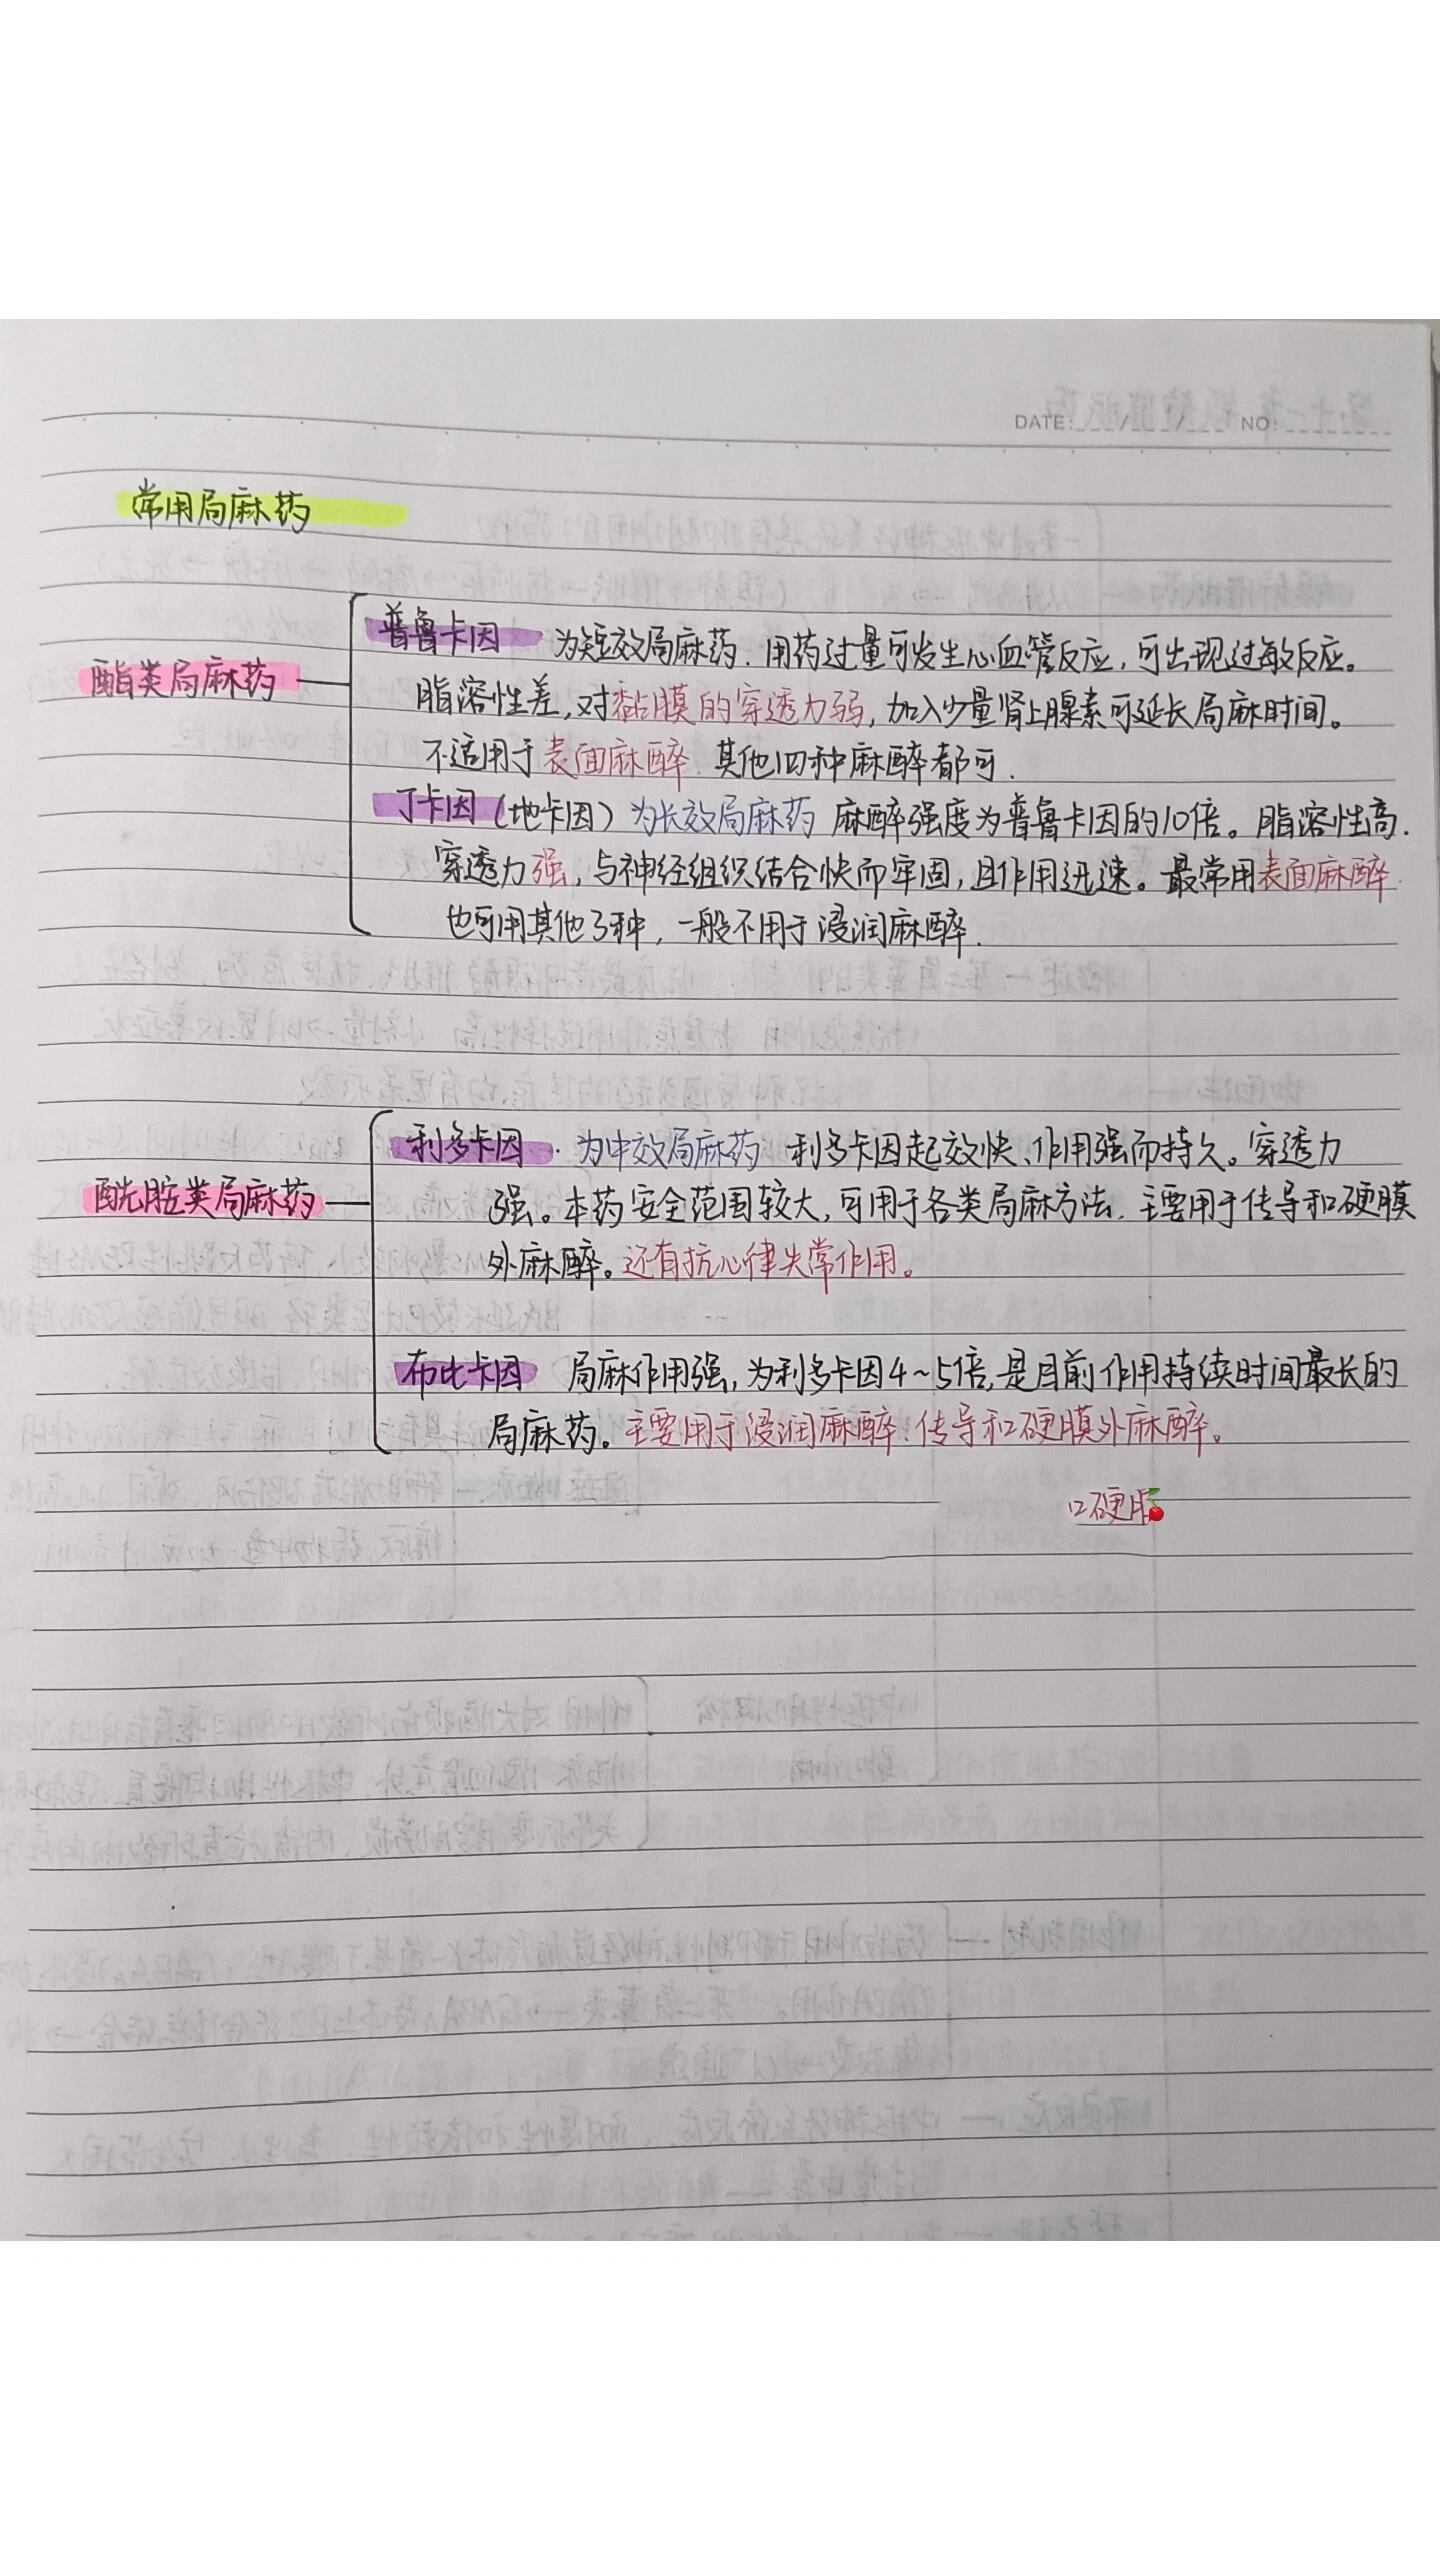 DATE: / / NO:
常用局麻药
酯类局麻药
普鲁卡因 为短效局麻药.用药过量可发生心血管反应,可出现过敏反应。
脂溶性差,对黏膜的穿透力弱,加入少量肾上腺素可延长局麻时间。
不适用于表面麻醉.其他四种麻醉都可.
丁卡因(地卡因)为长效局麻药 麻醉强度为普鲁卡因的10倍。脂溶性高.
穿透力强,与神经组织结合快而牢固,且作用迅速。最常用表面麻醉.
也可用其他3种,一般不用于浸润麻醉.
类局麻药
利多卡因.为中效局麻药 利多卡因起效快、作用强而持久。穿透力
强。本药安全范围较大,可用于各类局麻方法.主要用于传导和硬膜
外麻醉。还有抗心律失常作用。
布比卡因 局麻作用强,为利多卡因4~5倍,是目前作用持续时间最长的
局麻药。主要用于浸润麻醉.传导和硬膜外麻醉。
硬